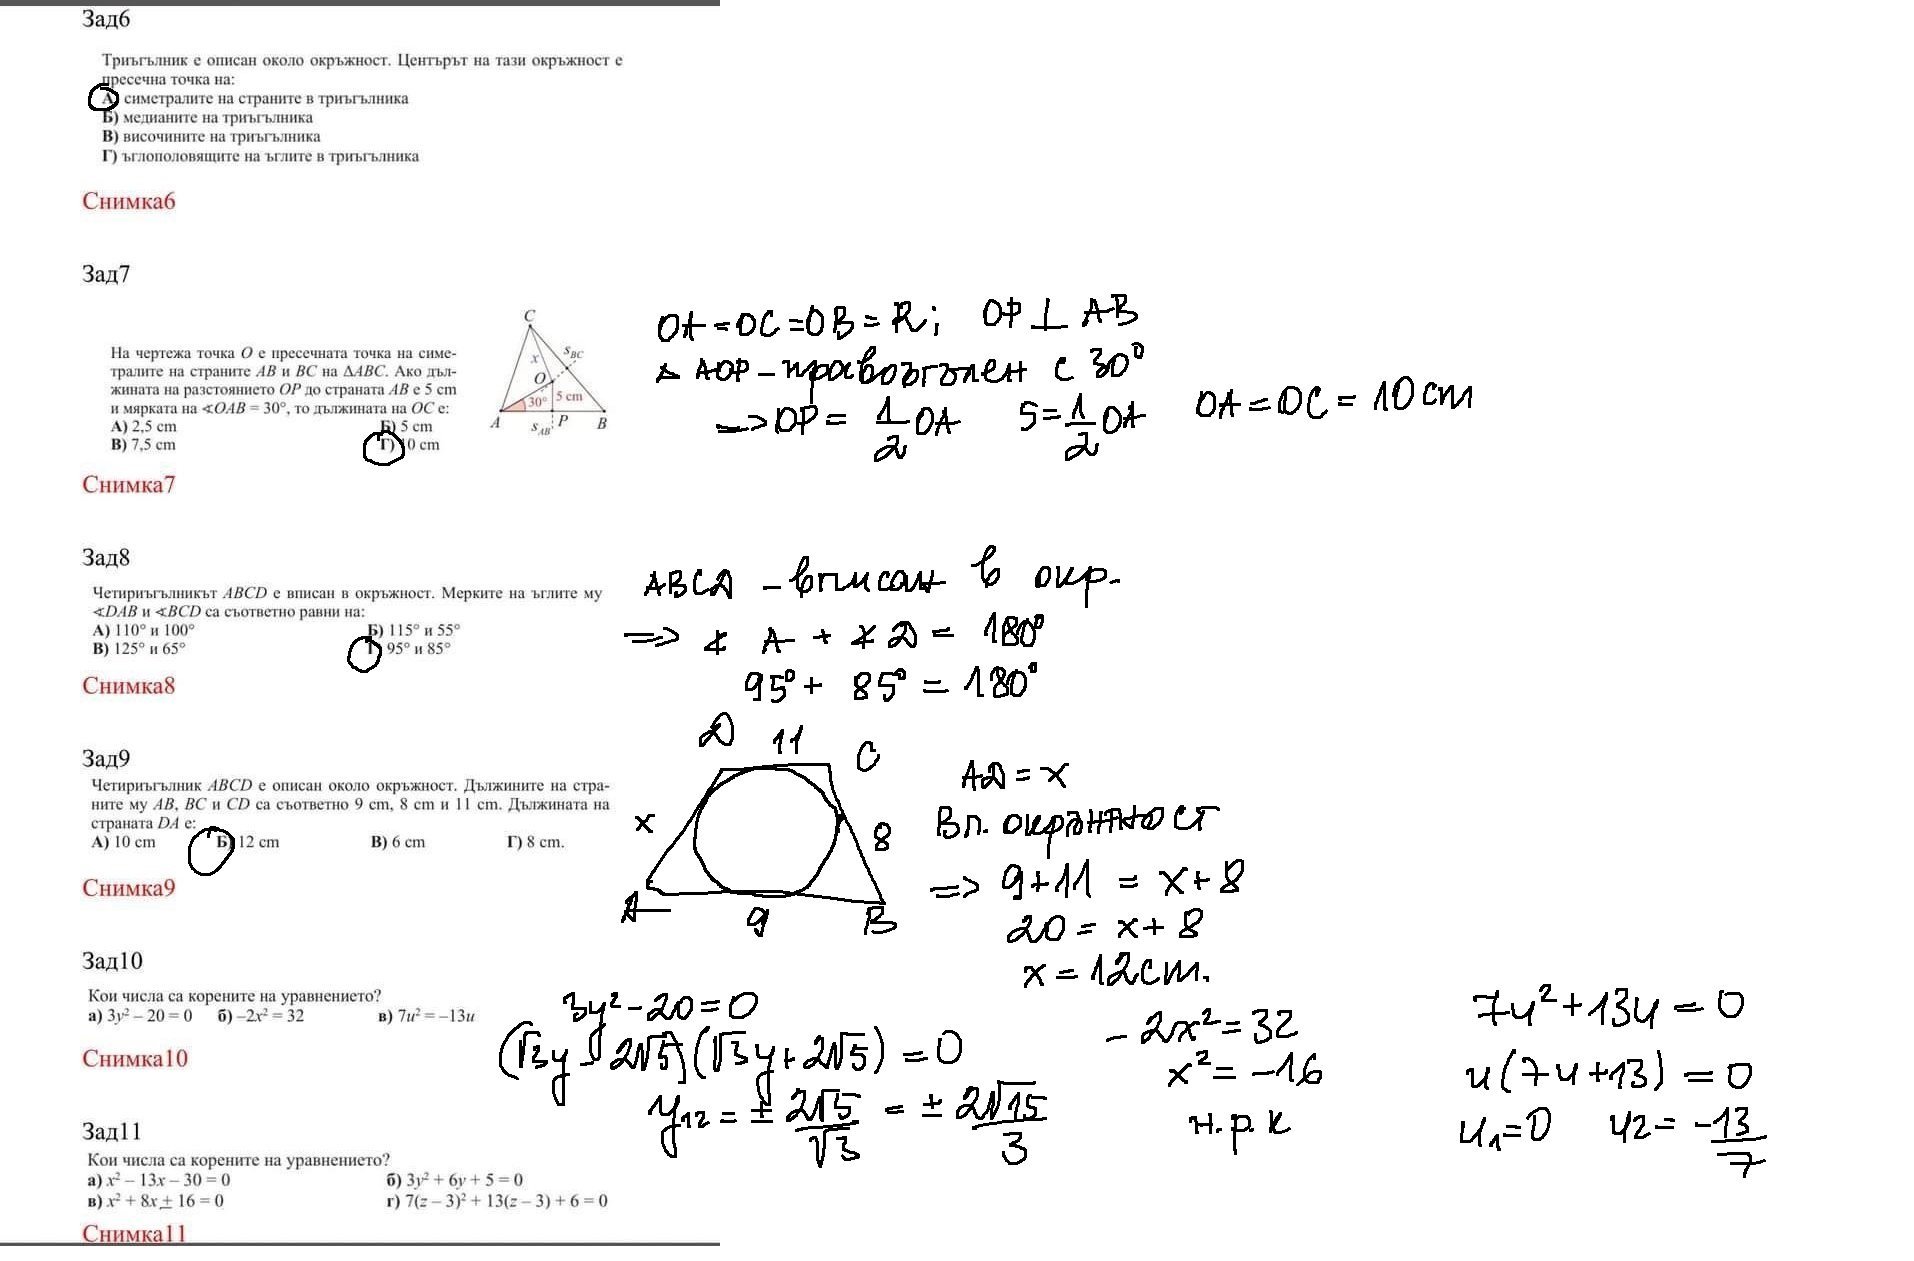 Зад6
Триъгълник е описан около окръжност. Центърът на тази окръжност е
пресечна точка на:
А) симетралите на страните в триъгълника
Б) медианите на триъгълника
В) височините на триъгълника
Г) ъглополовящите на ъглите в триъгълника
Снимка6
Зад7
На чертежа точка O е пресечната точка на симе-
тралите на страните AB и BC на ΔABC. Ако дъл-
жината на разстоянието OP до страната AB е 5 cm
и мярката на ∢OAB = 30°, то дължината на OC е:
А) 2,5 cm Б) 5 cm
В) 7,5 cm Г) 10 cm
C
x
s_BC
O
30° 5 cm
A s_AB P B
OA = OC = OB = R; OP ⊥ AB
△ AOP – правоъгълен с 30°
=> OP = 1/2 OA 5 = 1/2 OA OA = OC = 10 cm
Снимка7
Зад8
Четириъгълникът ABCD е вписан в окръжност. Мерките на ъглите му
∢DAB и ∢BCD са съответно равни на:
А) 110° и 100° Б) 115° и 55°
В) 125° и 65° Г) 95° и 85°
ABCD – вписан в окр.
=> ∢ A + ∢ D = 180°
95° + 85° = 180°
Снимка8
Зад9
Четириъгълник ABCD е описан около окръжност. Дължините на стра-
ните му AB, BC и CD са съответно 9 cm, 8 cm и 11 cm. Дължината на
страната DA е:
А) 10 cm Б) 12 cm В) 6 cm Г) 8 cm.
D 11 C
x 8
A 9 B
AD = x
Вп. окръжност
=> 9 + 11 = x + 8
20 = x + 8
x = 12 cm.
Снимка9
Зад10
Кои числа са корените на уравнението?
а) 3y² – 20 = 0 б) –2x² = 32 в) 7u² = –13u
3y² - 20 = 0
(√3y - 2√5)(√3y + 2√5) = 0
y₁₂ = ± 2√5/√3 = ± 2√15/3
- 2x² = 32
x² = -16
н.р.к
7u² + 13u = 0
u(7u + 13) = 0
u₁ = 0 u₂ = -13/7
Снимка10
Зад11
Кои числа са корените на уравнението?
а) x² – 13x – 30 = 0 б) 3y² + 6y + 5 = 0
в) x² + 8x + 16 = 0 г) 7(z – 3)² + 13(z – 3) + 6 = 0
Снимка11